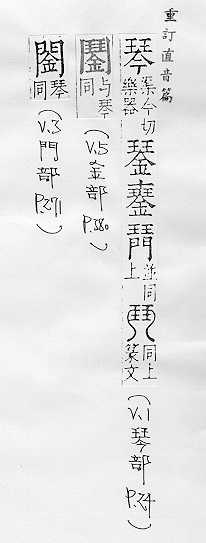 重訂直音篇
琴 渠今切樂器 並同上 同上篆文 (V.1 琴部 P.24)
与琴同 (V.5 金部 P.380)
琴同 (V.3 門部 P.271)